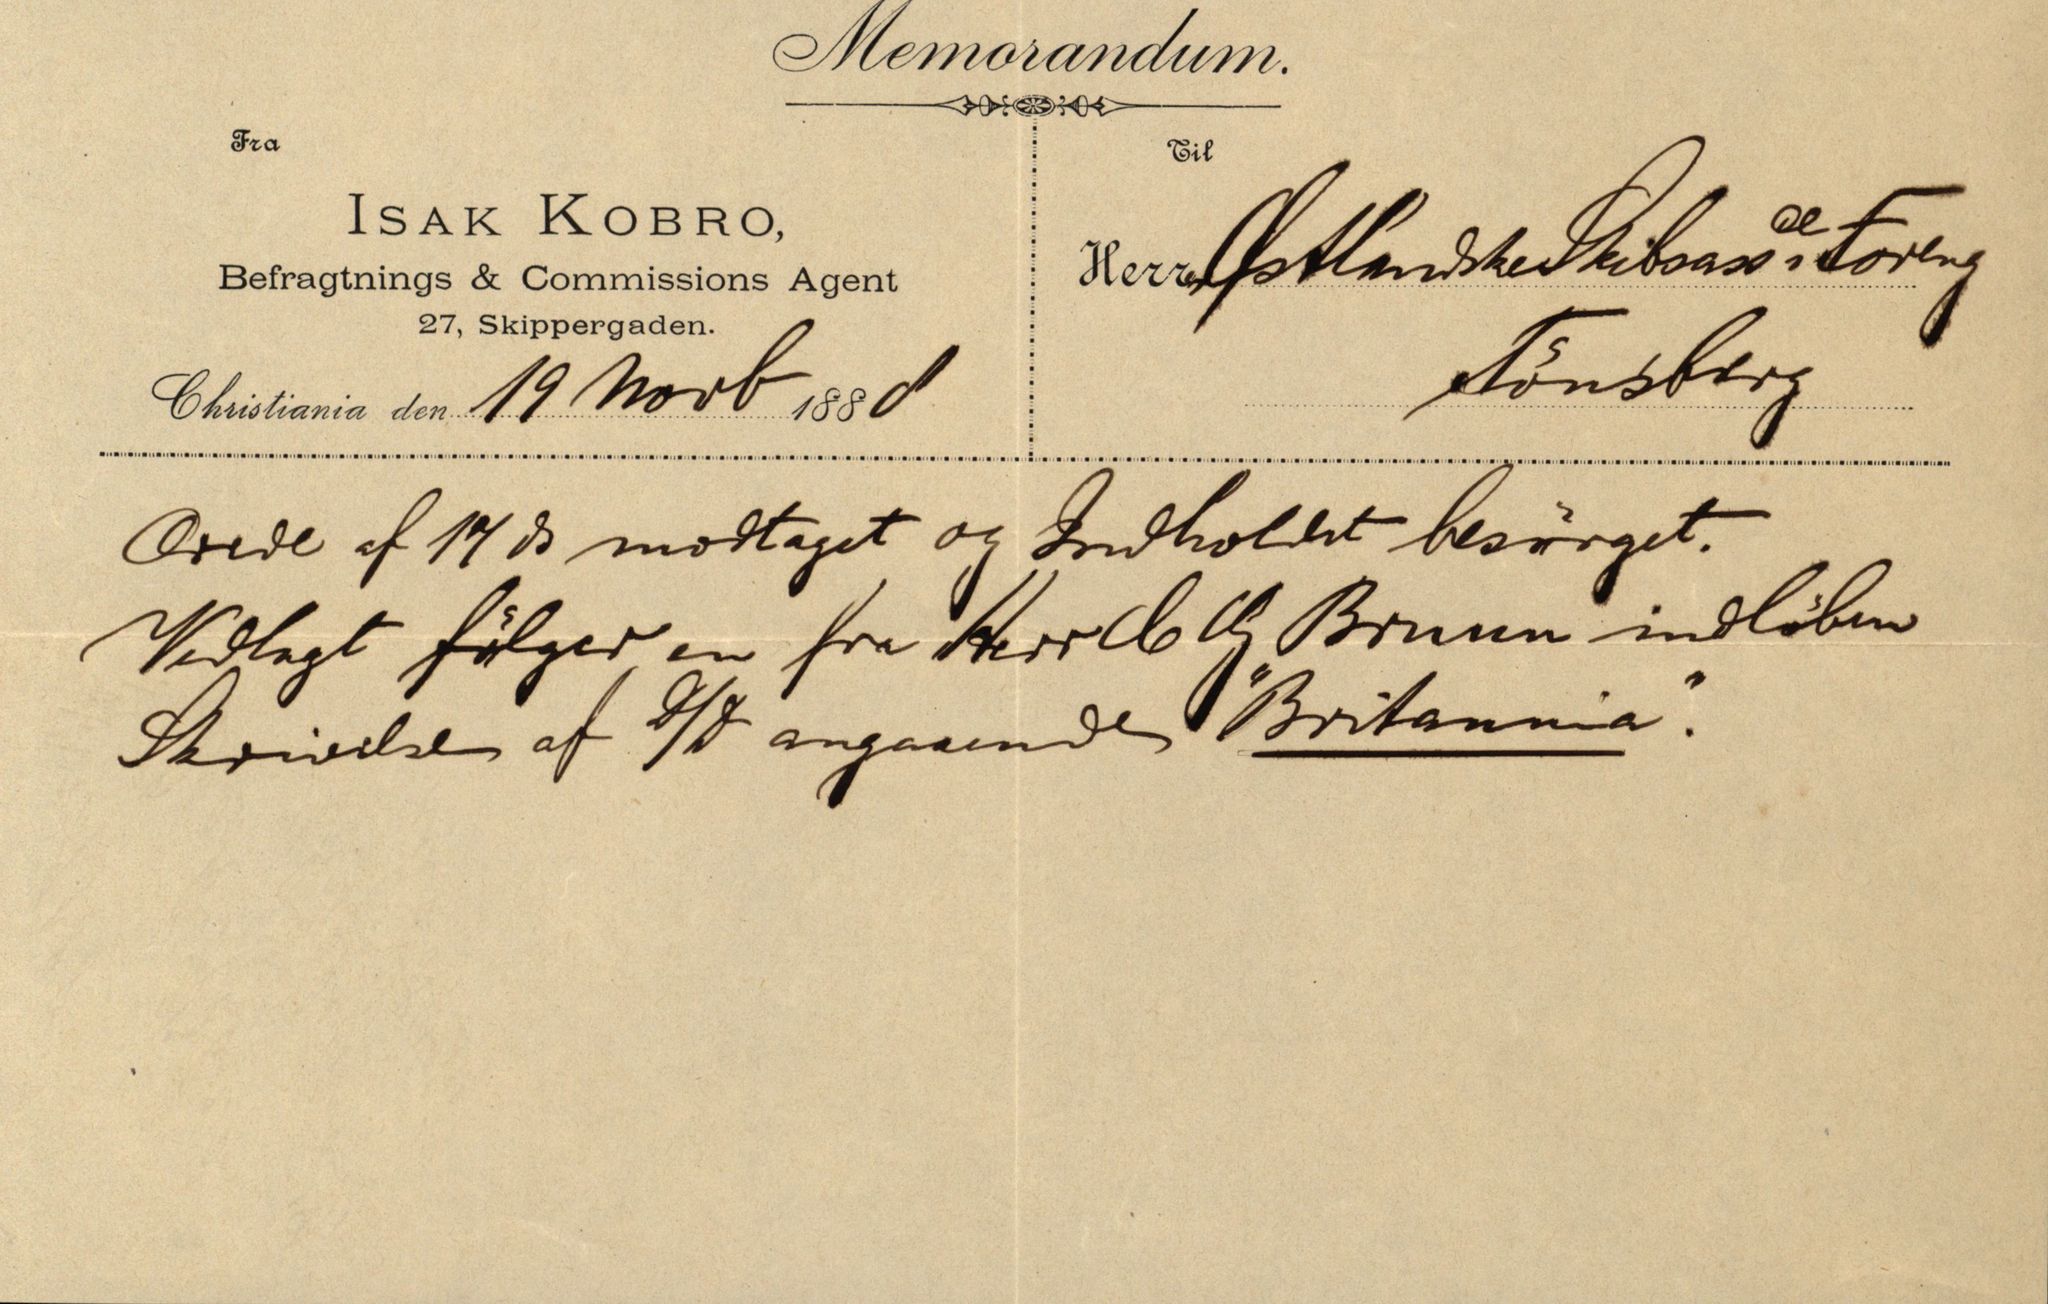 Memorandum.
Fra
ISAK KOBRO,
Befragtnings & Commissions Agent
27, Skippergaden.
Christiania den 19 Novb 1888
Til
Herrer Østlandske Skibsass de Foreng
Tönsberg
Ærede af 17 ds modtaget og Indholdet besörget.
Vedlagt fölger en fra Herr C G Bruun indlöben
Skrivelse af D/D angaaende "Britannia".